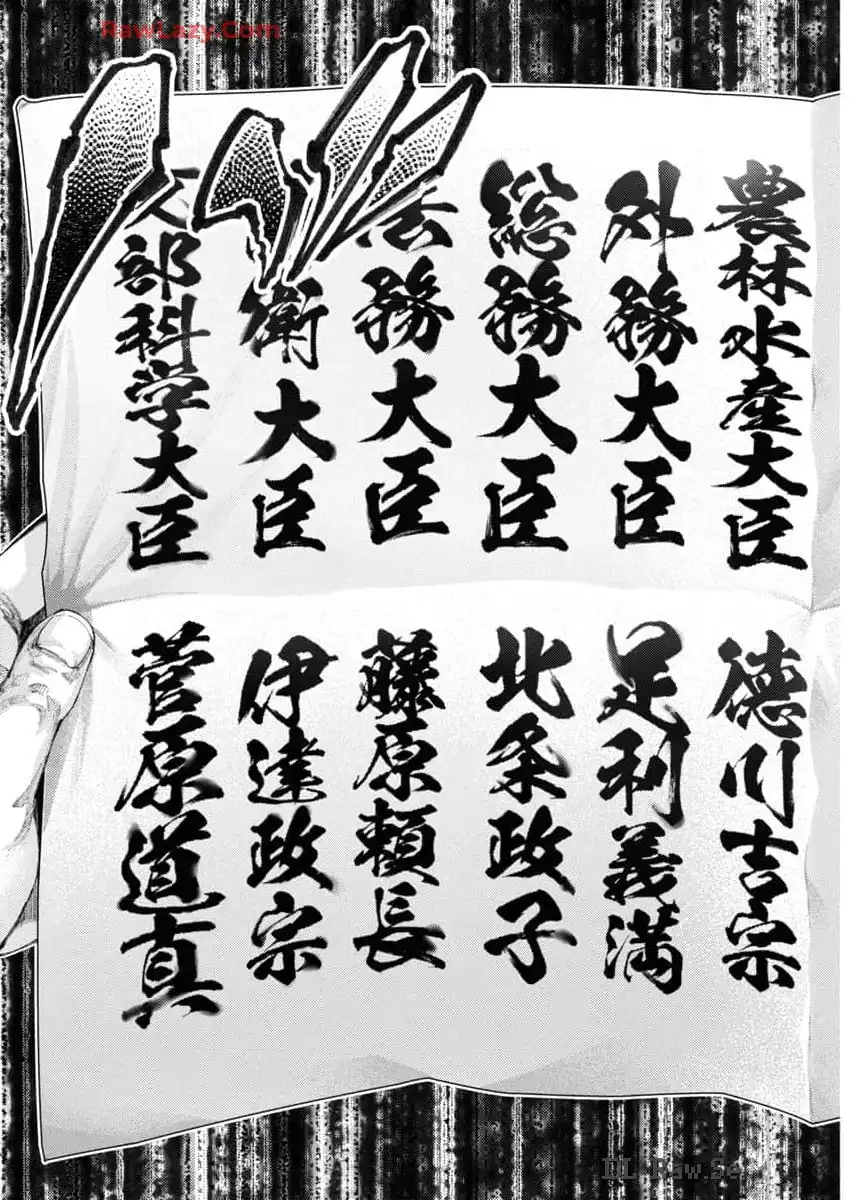 RawLazy.Com
農林水産大臣
徳川吉宗
外務大臣
足利義満
総務大臣
北条政子
法務大臣
藤原頼長
衛大臣
伊達政宗
文部科学大臣
菅原道真